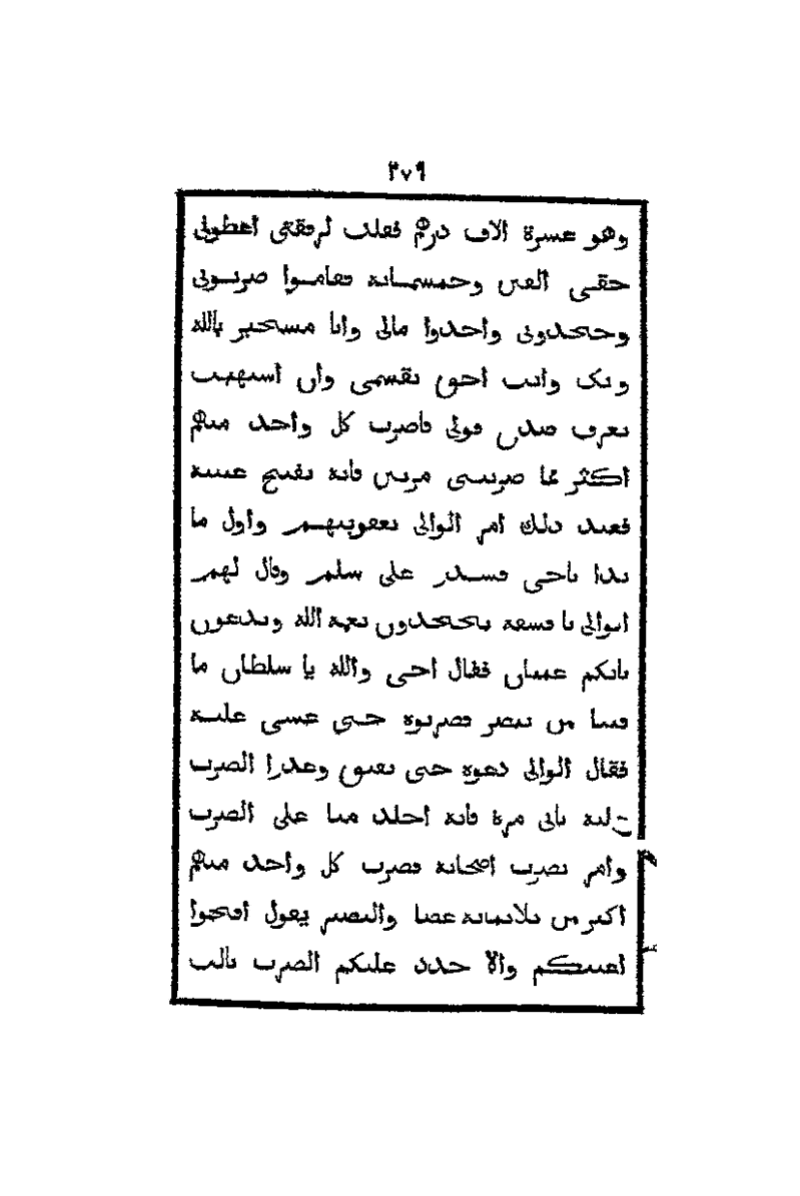 ٢٧٩
وهو عشرة الاف درهم فقلت لرفقتى اعطونى
حقـى الفين وخمسمـائة فقامـوا ضربـونى
وجحدونى واخذوا مالى وانا مستجير بالله
وبك وانت احق بقسمى وان اشتهيت
تعرف صدق قولى فاضرب كل واحد منهم
اكثر مما ضربتنى مرتين فانه يفتح عينيه
فعند ذلك امر الوالى بعقوبتهـم واول ما
بدا باخى فشـد على سلم وقال لهم
الوالى يا فسقة تجحدون نعمة الله وتدعون
بانكم عميان فقال اخى والله يا سلطان ما
فينا من يبصر فضربوه حـتى غشى عليـه
فقال الوالى دعوه حتى يفيق وعدوا الضرب
عليه ثانى مرة فانه اجلد منا على الضرب
وامر بضرب اصحابه فضرب كل واحد منهم
اكثر من ثلاثمائة عصا والبصير يقول افتحوا
اعينكم والا جدد عليكم الضرب ثالث